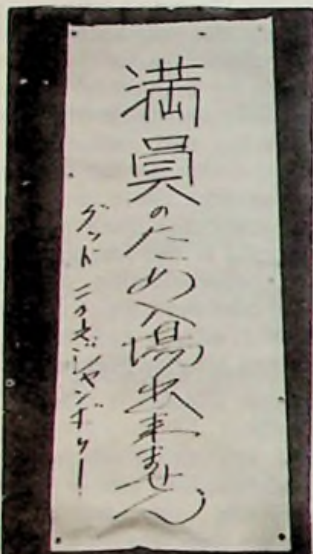 満員のため入場出来ません
グッドニつぎジャンボリー